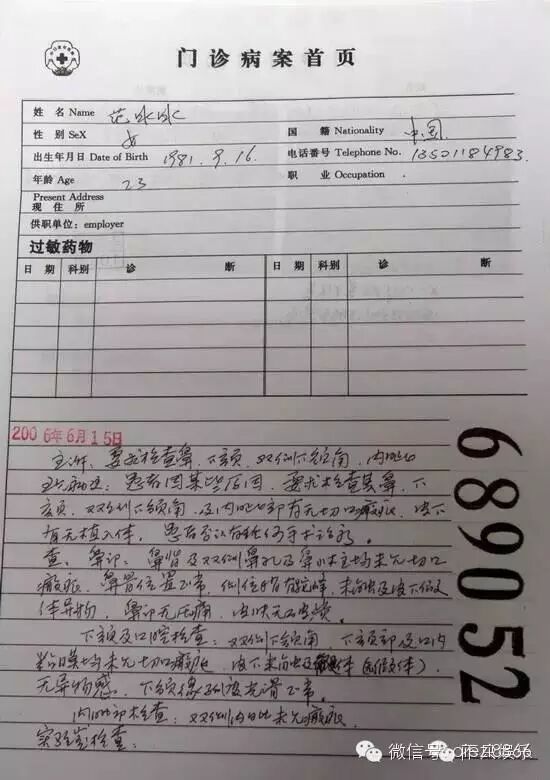 门诊病案首页
姓 名 Name 范冰冰
性 别 SeX 女 国 籍 Nationality 中国
出生年月日 Date of Birth 1981.9.16. 电话号番 Telephone No. 13501184983.
年龄 Age 23 职 业 Occupation
Present Address
现 住 所
供职单位: employer
过敏药物
日 期 科别 诊 断 日 期 科别 诊 断
2006年6月15日
主诉: 要求检查鼻、下颏、双侧下颌角、内眦
患者因某些原因, 要求检查其鼻、下
颏、双侧下颌角、及内眦部有无切口瘢痕, 皮下
有无植入体。患者否认有任何手术诊疗。
查: 鼻部、鼻背及双侧鼻孔及鼻小柱均未见切口
瘢痕, 鼻骨位置正常, 侧位略有驼峰, 未触及皮下假
体异物, 鼻部无压痛, 皮肤无
下颏及口腔检查: 双侧下颌角、下颏部及口内
粘膜均未见切口瘢痕, 皮下未触及 (假体)。
无异物感, 下颌缘 光滑正常。
内眦部检查: 双侧内眦未见瘢痕
实验室检查:
689052
微信号